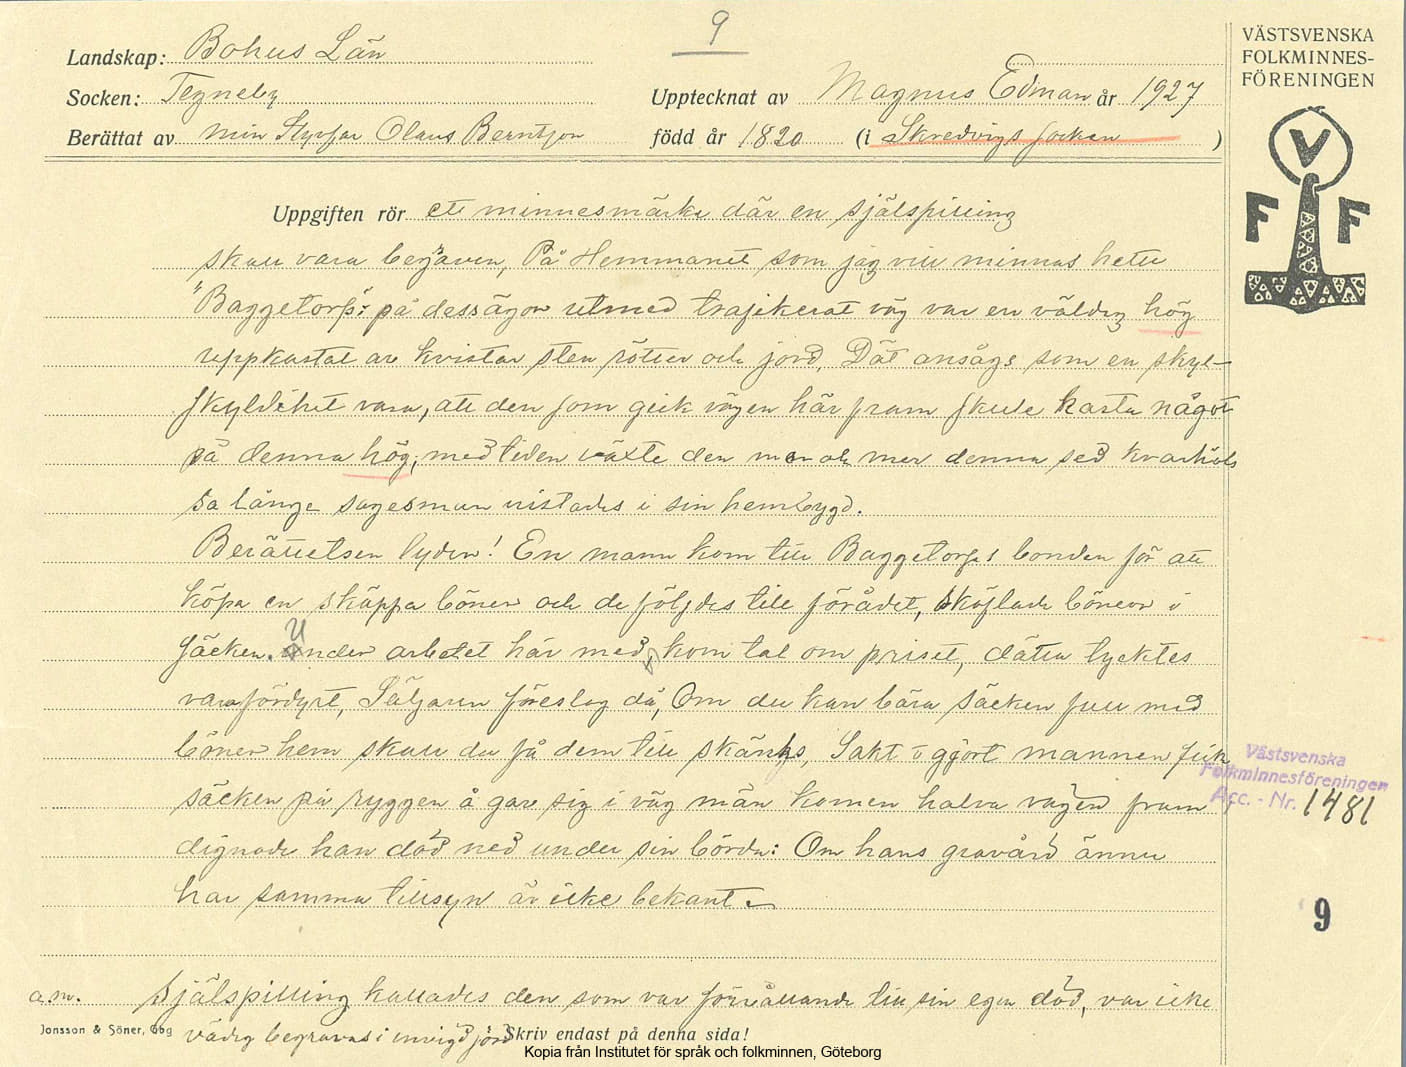 9
VÄSTSVENSKA
FOLKMINNES-
FÖRENINGEN
Landskap: Bohus Län
Socken: Tegneby
Upptecknat av Magnus Edman år 1927
Berättat av min Styvfar Olaus Berntson född år 1820 (i Skredvigs socken)
V
F F
Uppgiften rör ett minnesmärke där en självspilling
skall vara begraven, På Hemmanet som jag vill minnas hette
"Baggetorp": på dess ägor utmed trafikerat väg var en väldig hög
uppkastat av kvistar sten rötter och jord. Dät ansågs som en skyl-
skyldihet vara, att den som gick vägen här fram skule kasta något
på denna hög, med tiden växte den mer och mer denna sed kvarhöls
så länge sagesman vistades i sin hembygd.
Berättelsen lyder! En mann kom till Baggetorps bonden för att
köpa en skäppa böner och de följdes till förådet, sköflade böner i
säcken. Under arbetet här med kom tal om priset, dätta tycktes
vara fördyrt, Säljaren föreslog då, Om du kan bära säcken full med
böner hem skall du få dem till skänks, Sakt o gjort mannen fick
säcken på ryggen å gav sig i väg män komen halva vägen fram
dignade han död ned under sin börda: Om hans gravård ännu
har samma tillsyn är icke bekant.
a.m. Själspilling kallades den som var förvållande till sin egen död, var icke
värdig begravas i invigd jord
Jonsson & Söner, Gbg
Skriv endast på denna sida!
Västsvenska
Folkminnesföreningen
Acc. - Nr. 1481
9
Kopia från Institutet för språk och folkminnen, Göteborg